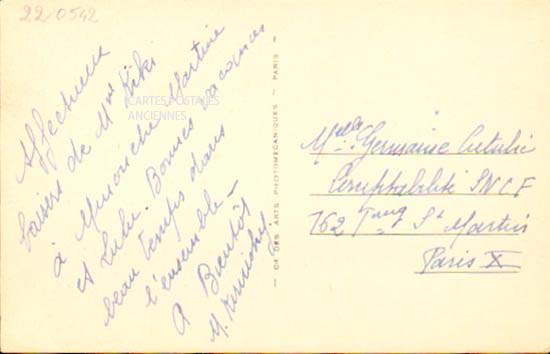 22/0542
Affectueux
baisers de Mme Kiki
à Minouche Martine
et Lulu. Bonnes vacances
beau temps dans
l'ensemble -
A Bientôt
M.
CARTES POSTALES
ANCIENNES
CIE DES ARTS PHOTOMÉCANIQUES - PARIS -
Melle Germaine
Comptabilité SNCF
162 Faubg St Martin
Paris X